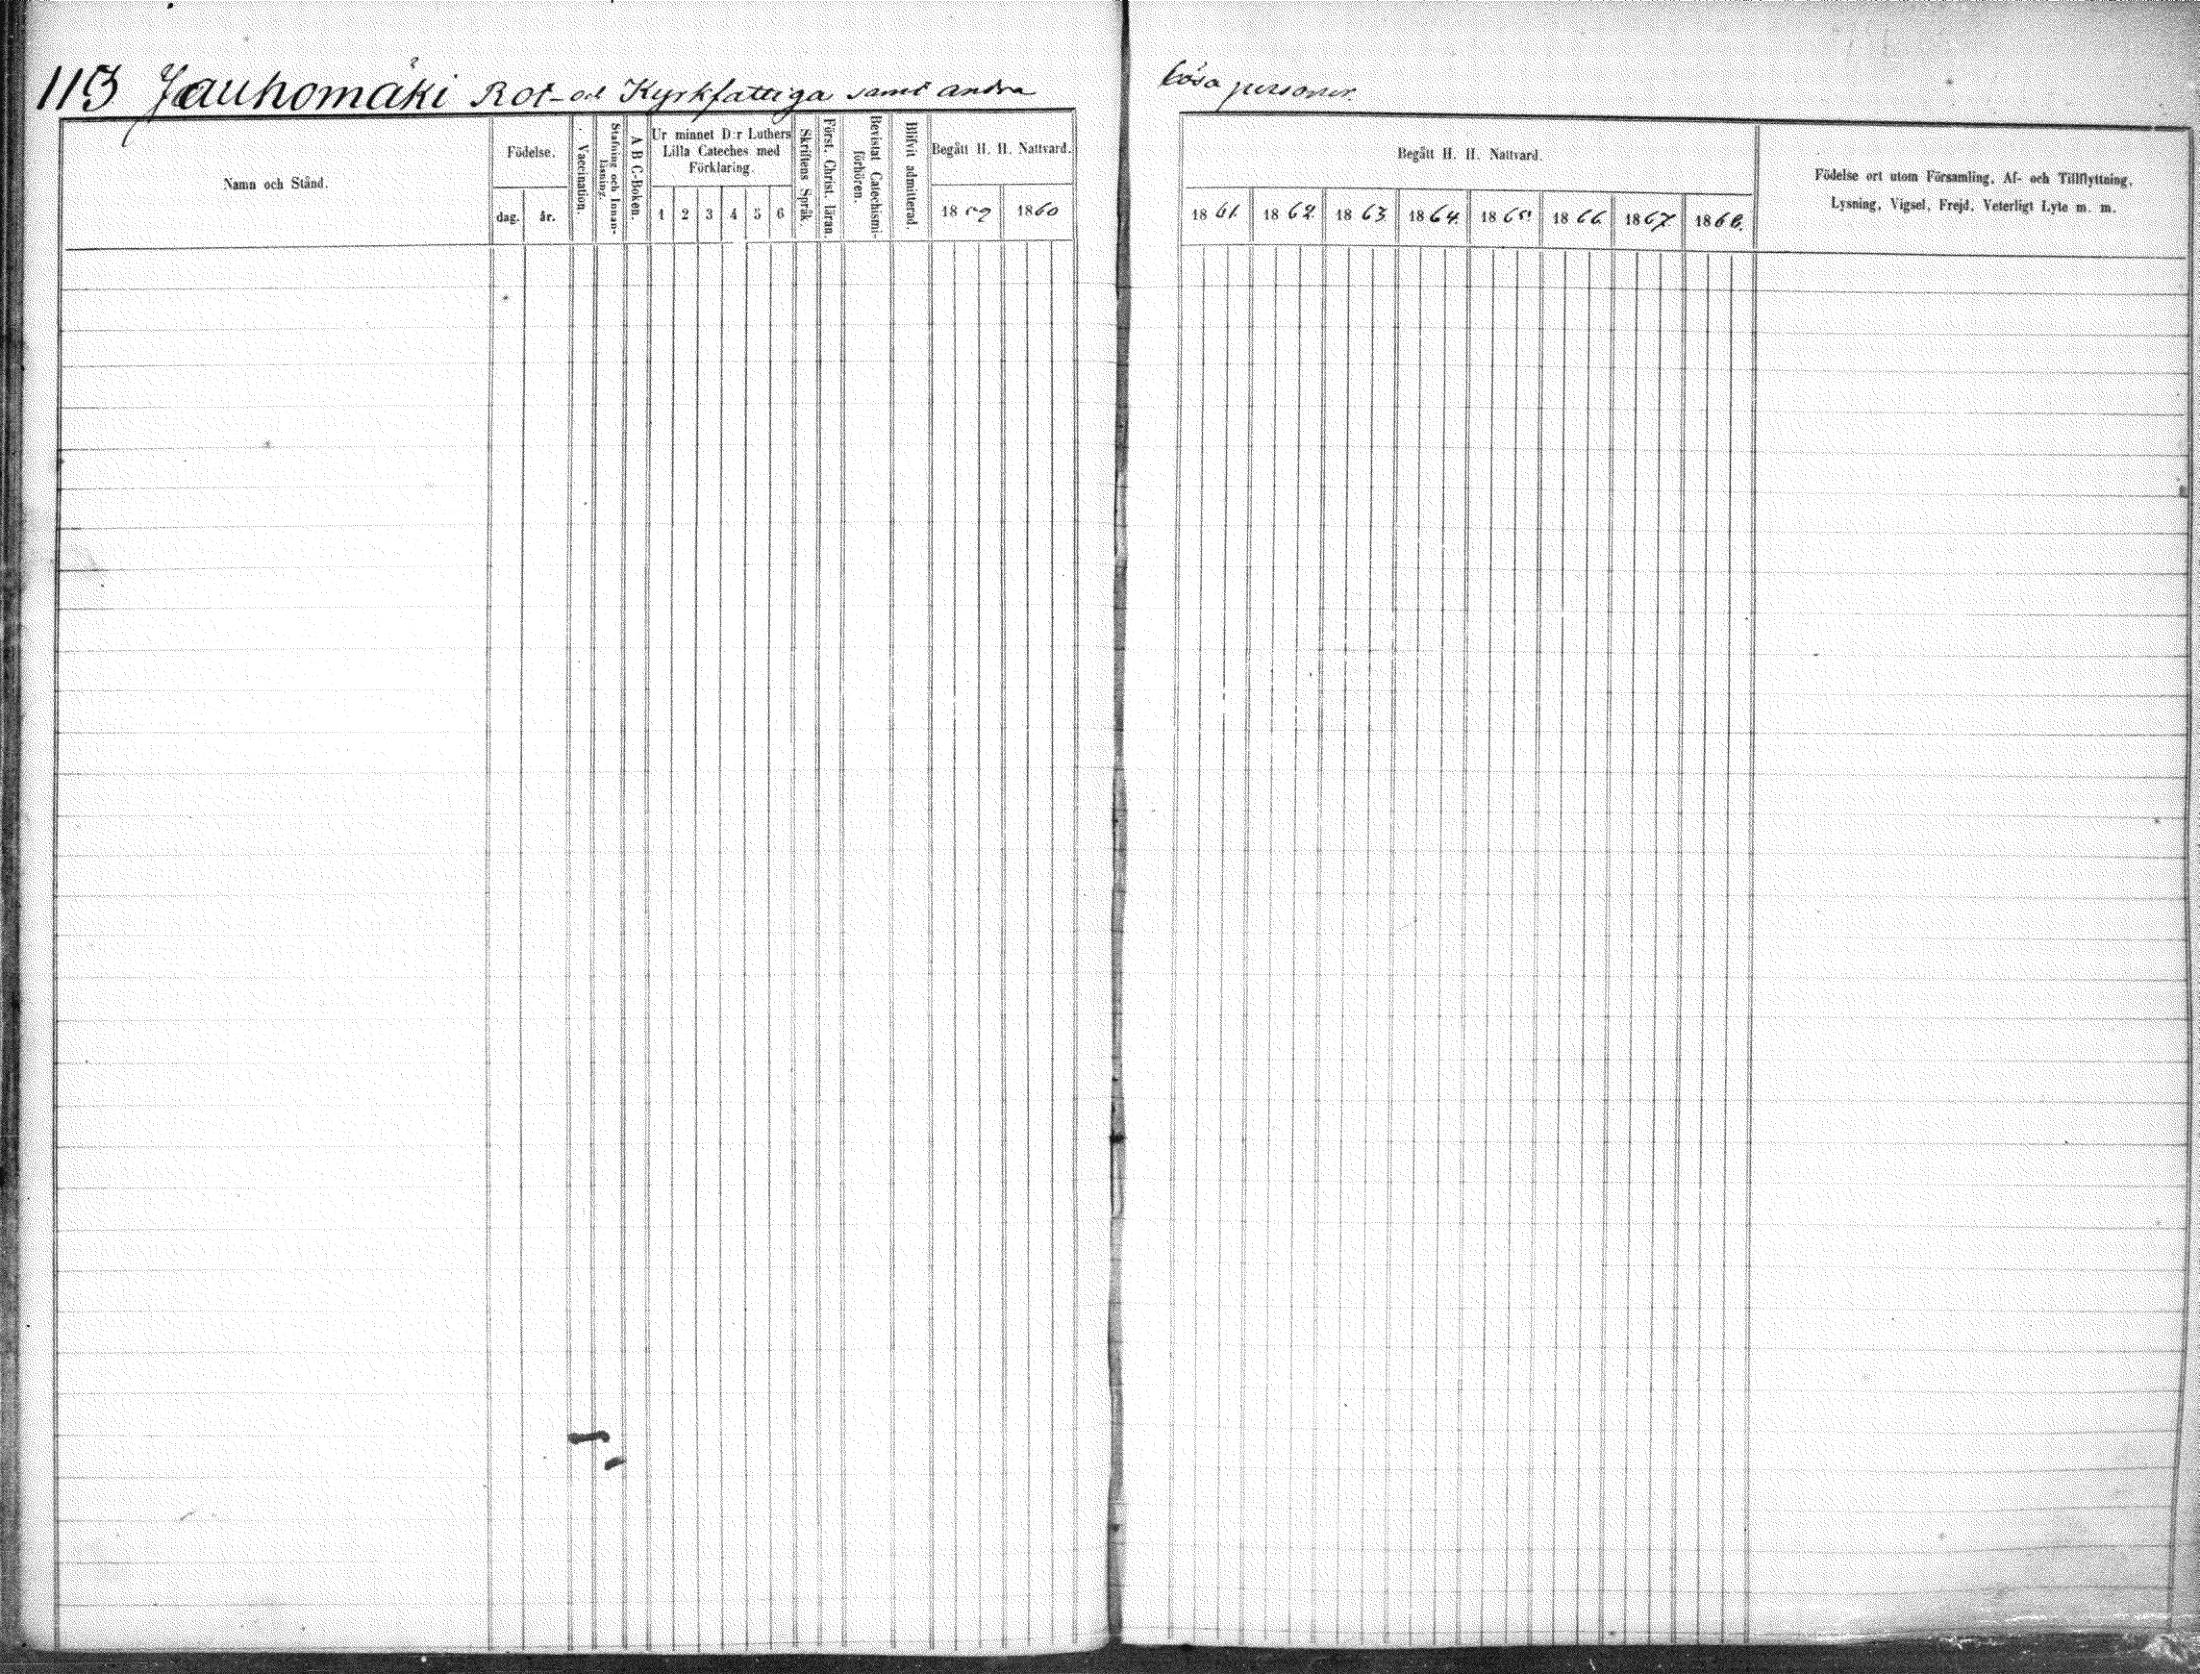 113 Jauhomäki Rot- och Kyrkfattiga samt andra lösa personer.
Namn och Stånd.
Födelse.
dag.
år.
Vaccination.
Stafning och Innan-
läsning.
A B C-Boken.
Ur minnet D:r Luthers
Lilla Cateches med
Förklaring.
1 2 3 4 5 6
Skriftens Språk.
Först. Christ. läran.
Bevistat Catechismi-
förhören.
Blifvit admitterad.
Begått H. H. Nattvard.
1859 1860
Begått H. H. Nattvard.
1861. 1862. 1863. 1864. 1865. 1866. 1867. 1868.
Födelse ort utom Församling, Af- och Tillflyttning,
Lysning, Vigsel, Frejd, Veterligt Lyte m. m.